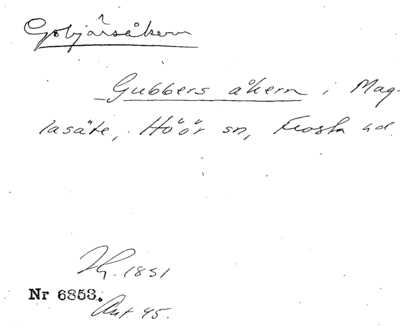 Gobjärsåkern
Gubbers åkern i Mag-
lasäte, Höör sn, Frosta hd.
Hg. 1851
Nr 6853.
Ant. 45.